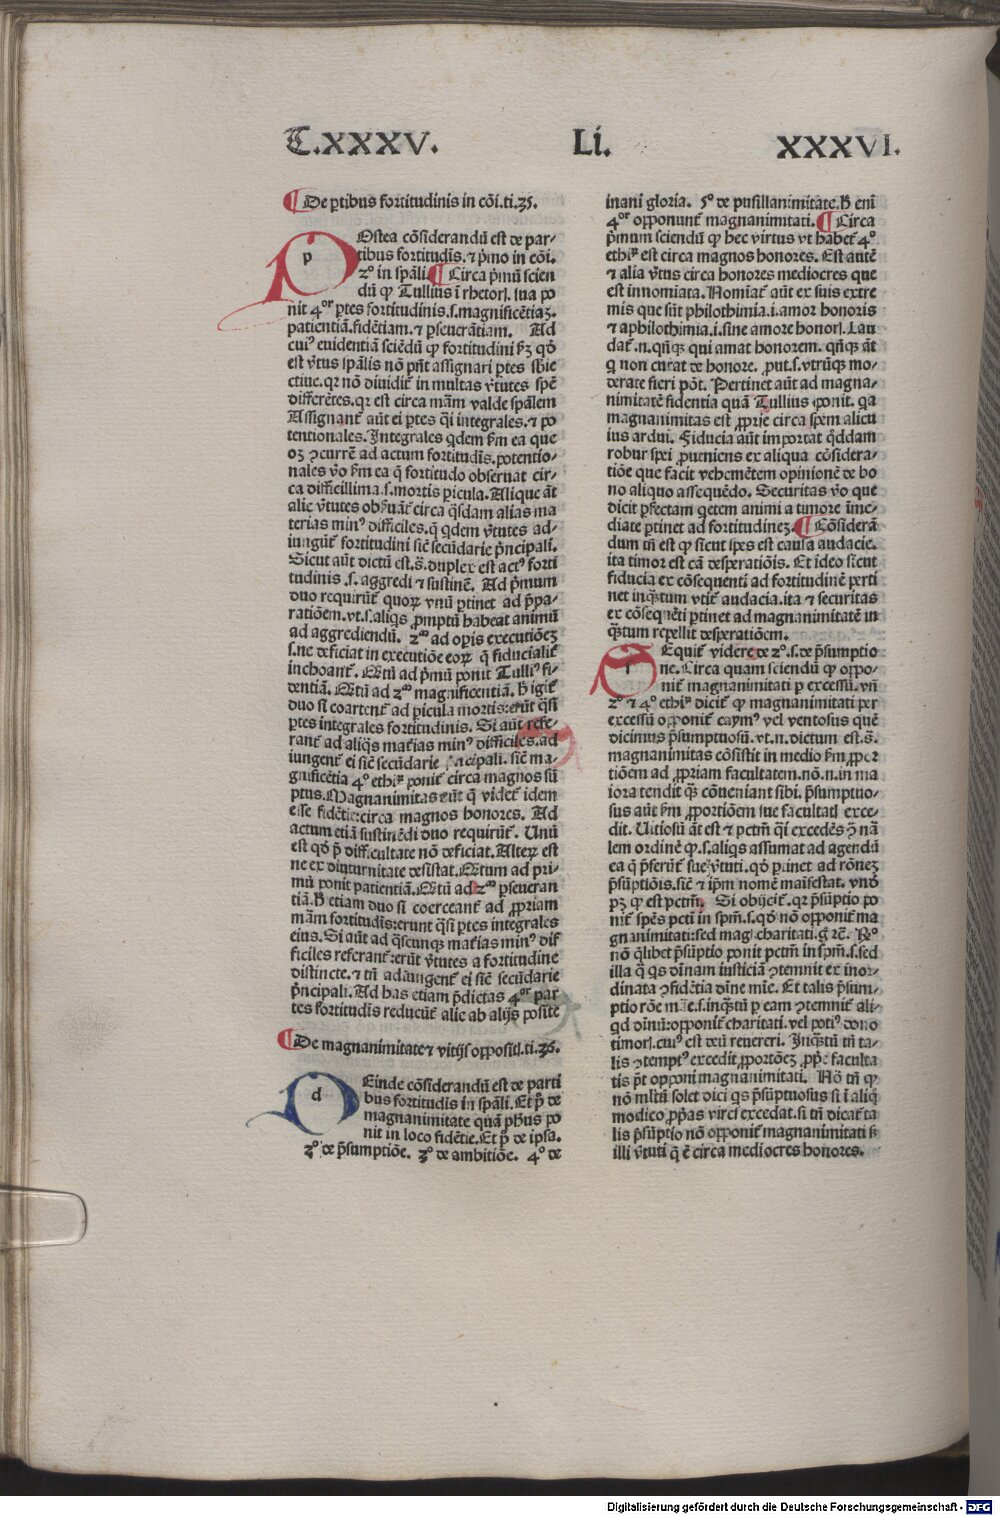 T.XXXV. Li. XXXVI.
¶ De ꝑtibus fortitudinis in cõi.ti.35.
POstea cõsiderandũ est de par-
tibus fortitudĩs.⁊ p̃mo in cõi.
2º in spãli.¶ Circa p̃mũ scien
dũ ꝙ Tullius ĩ rhetorꝭ. sua po
nit 4ᵒʳ ꝑtes fortitudinis.s.magnificẽtiaꝫ.
patientiã.fidẽtiam.⁊ ꝑseuerãtiam. Ad
cuiꝰ euidentiã sciẽdũ ꝙ fortitudini ẜꝫ qð
est v̾tus spãlis nõ pñt assignari ꝑtes sbie
ctiue.qꝛ nõ diuidit᷑ in multas v̾tutes spẽ
differẽtes.qꝛ est circa mãm valde spãlem
Assignant᷑ aũt ei ꝑtes q̃i integrales.⁊ po
tentionales. Integrales qdem ẜm ea que
oꝫ ꝯcurrẽ ad actum fortitudĩs.potentio-
nales v̾o ẜm ea q̃ fortitudo obseruat cir-
ca difficillima.s.mortis ꝑicula. Alique ãt
alie v̾tutes obẜuãt᷑ circa q̃sdam alias ma
terias minꝰ difficiles.q̃ qdem v̾tutes ad-
iungũt᷑ fortitudini siẽ secũdarie p̃ncipali.
Sicut aũt dictũ est.s̃.duplex est actꝰ forti
tudinis .s. aggredi ⁊ sustinẽ. Ad p̃mum
duo requirũt᷑ quoꝝ vnũ ꝑtinet ad p̃pa-
ratiõem.vt.s.aliqs ꝓmptũ habeat animũ
ad aggrediendũ. 2ᵐ ad oꝑis executiõeꝫ
s.ne deficiat in executiõe eoꝝ q̃ fiducialit᷑
inchoant᷑. Q̃tũ ad p̃mũ ponit Tulliꝰ fi-
dentiã. Q̃tũ ad 2ᵐ magnificentiã. H̾ igit᷑
duo si coartent᷑ ad ꝑicula mortis:erũt q̃si
ꝑtes integrales fortitudinis. Si aũt refe-
rant᷑ ad aliq̃s mat᷑ias minꝰ difficiles.ad
iungent᷑ ei siẽ secũdarie p̃ncipali. siẽ ma-
gnificẽtia 4º ethiꝝ ponit᷑ circa magnos sũ
ptus. Magnanimitas aũt q̃ videt᷑ idem
esse fidẽtie:circa magnos honores. Ad
actum etiã sustinẽdi duo requirũt᷑. Unũ
est qð p̃ difficultate nõ deficiat. Alteꝝ est
ne ex diuturnitate desistat. Q̃tum ad pri-
mũ ponit patientiã. Q̃tũ ad 2ᵐ ꝑseueran
tiã. H̾ etiam duo si coerceant᷑ ad ꝓpriam
mãm fortitudĩs:erunt q̃si ꝑtes integrales
eius. Si aũt ad q̃scunqꝫ mat᷑ias minꝰ dif
ficiles referant᷑:erũt v̾tutes a fortitudine
distincte.⁊ tñ adiungent᷑ ei siẽ secũdarie
p̃ncipali. Ad has etiam p̃dictas 4ᵒʳ par
tes fortitudĩs reducũt᷑ alie ab alijs posite
¶ De magnanimitate ⁊ vitijs oppositꝭ.ti.36.
DEinde cõsiderandũ est de parti
bus fortitudĩs in spãli. Et p̃ de
magnanimitate quã pħus po
nit in loco fidẽtie. Et p̃ de ipsa.
2º de p̃sumptiõe. 3º de ambitiõe. 4º de
inani gloria. 5º de pusillanimitate. H̾ enĩ
4ᵒʳ opponunt᷑ magnanimitati.¶ Circa
p̃mum sciendũ ꝙ hec virtus vt habet᷑ 4º
ethiꝝ est circa magnos honores. Est autẽ
⁊ alia v̾tus circa honores mediocres que
est innomĩata. Nomĩat᷑ aũt ex suis extre
mis que sũt philothimia.i.amor honoris
⁊ aphilothimia.i.sine amore honorꝭ. Lau
dat᷑.n.qñqꝫ qui amat honorem. qñqꝫ ãt
q non curat de honore. ꝓut.s.vtrũqꝫ mo-
derate fieri põt. Pertinet aũt ad magna-
nimitatẽ fidentia quã Tullius ponit. qꝛ
magnanimitas est ꝓprie circa spem alicu
ius ardui. Fiducia aũt importat qddam
robur spei ꝓueniens ex aliqua cõsidera-
tiõe que facit vehemẽtem opinionẽ de bo
no aliquo assequẽdo. Securitas v̾o que
dicit ꝑfectam quetem animi a timore ĩme-
diate ꝑtinet ad fortitudineꝫ.¶ Cõsiderã
dum tñ est ꝙ sicut spes est causa audacie.
ita timor est cã desperatiõis. Et ideo sicut
fiducia ex cõsequenti ad fortitudinẽ perti
net inq̃stum vtit᷑ audacia.ita ⁊ securitas
ex cõsequẽti ꝑtinet ad magnanimitatẽ in
q̃stum repellit desperatiõem.
SEquit᷑ videre de 2º.s.de p̃sumptio
ne. Circa quam sciendũ ꝙ oppo-
nit᷑ magnanimitati p excessũ. vñ
2º ⁊ 4º ethiꝝ dicit᷑ ꝙ magnanimitati per
excessũ opponit᷑ caymꝰ vel ventosus quẽ
dicimus p̃sumptuosũ. vt.n.dictum est.s̃.
magnanimitas cõsistit in medio ẜm ꝓpor
tiõem ad ꝓpriam facultatem.nõ.n.in ma
iora tendit qꝫ cõueniant sibi. p̃sumptuo-
sus aũt ẜm ꝓportiõem sue facultatꝭ exce-
dit. Uitiosũ ãt est ⁊ pctm̃ q̃i excedẽs ꝯ nã
lem ordinẽ ꝙ.s.aliqs assumat ad agendũ
ea q̃ p̃ferũt᷑ sue v̾tuti. qð ꝑtinet ad rõneꝫ
p̃sũptiõis. siẽ ⁊ ip̃m nomẽ maĩfestat. vnð
pꝫ ꝙ est pctm̃. Si obijcit᷑. qꝛ p̃sũptio po
nit᷑ spẽs pcti in spm̃.s.qð nõ opponit᷑ ma
gnanimitati:sed magꝭ charitati.g̊ rẽ. Rº
nõ qlibet p̃sũptio ponit᷑ pctm̃ in spm̃.s.sed
illa q̃ qs diuinam iusticiã ꝯtemnit ex inor-
dinata ꝯfidẽtia diĩne mie. Et talis p̃sum-
ptio rõe m̃ie.s.inq̃stũ p eam ꝯtemnit᷑ ali-
qd diuinũ:opponit᷑ charitati. vel potiꝰ dono
timorꝭ.cuiꝰ est deũ reuereri. Inq̃stũ tñ ta-
lis ꝯtemptꝰ excedit ꝓportõeꝫ ꝓp̃e faculta
tis p̃t opponi magnanimitati. Nõ tñ ꝙ
nõ mltũ solet dici qs p̃sũptuosus si ĩ aliq
modico ꝓpꝛas virꝭ excedat. si tñ dicat᷑ ta
lis p̃sũptio nõ opponit᷑ magnanimitati ẜ
illi v̾tuti q̃ ẽ circa mediocres honores.
Digitalisierung gefördert durch die Deutsche Forschungsgemeinschaft - DFG